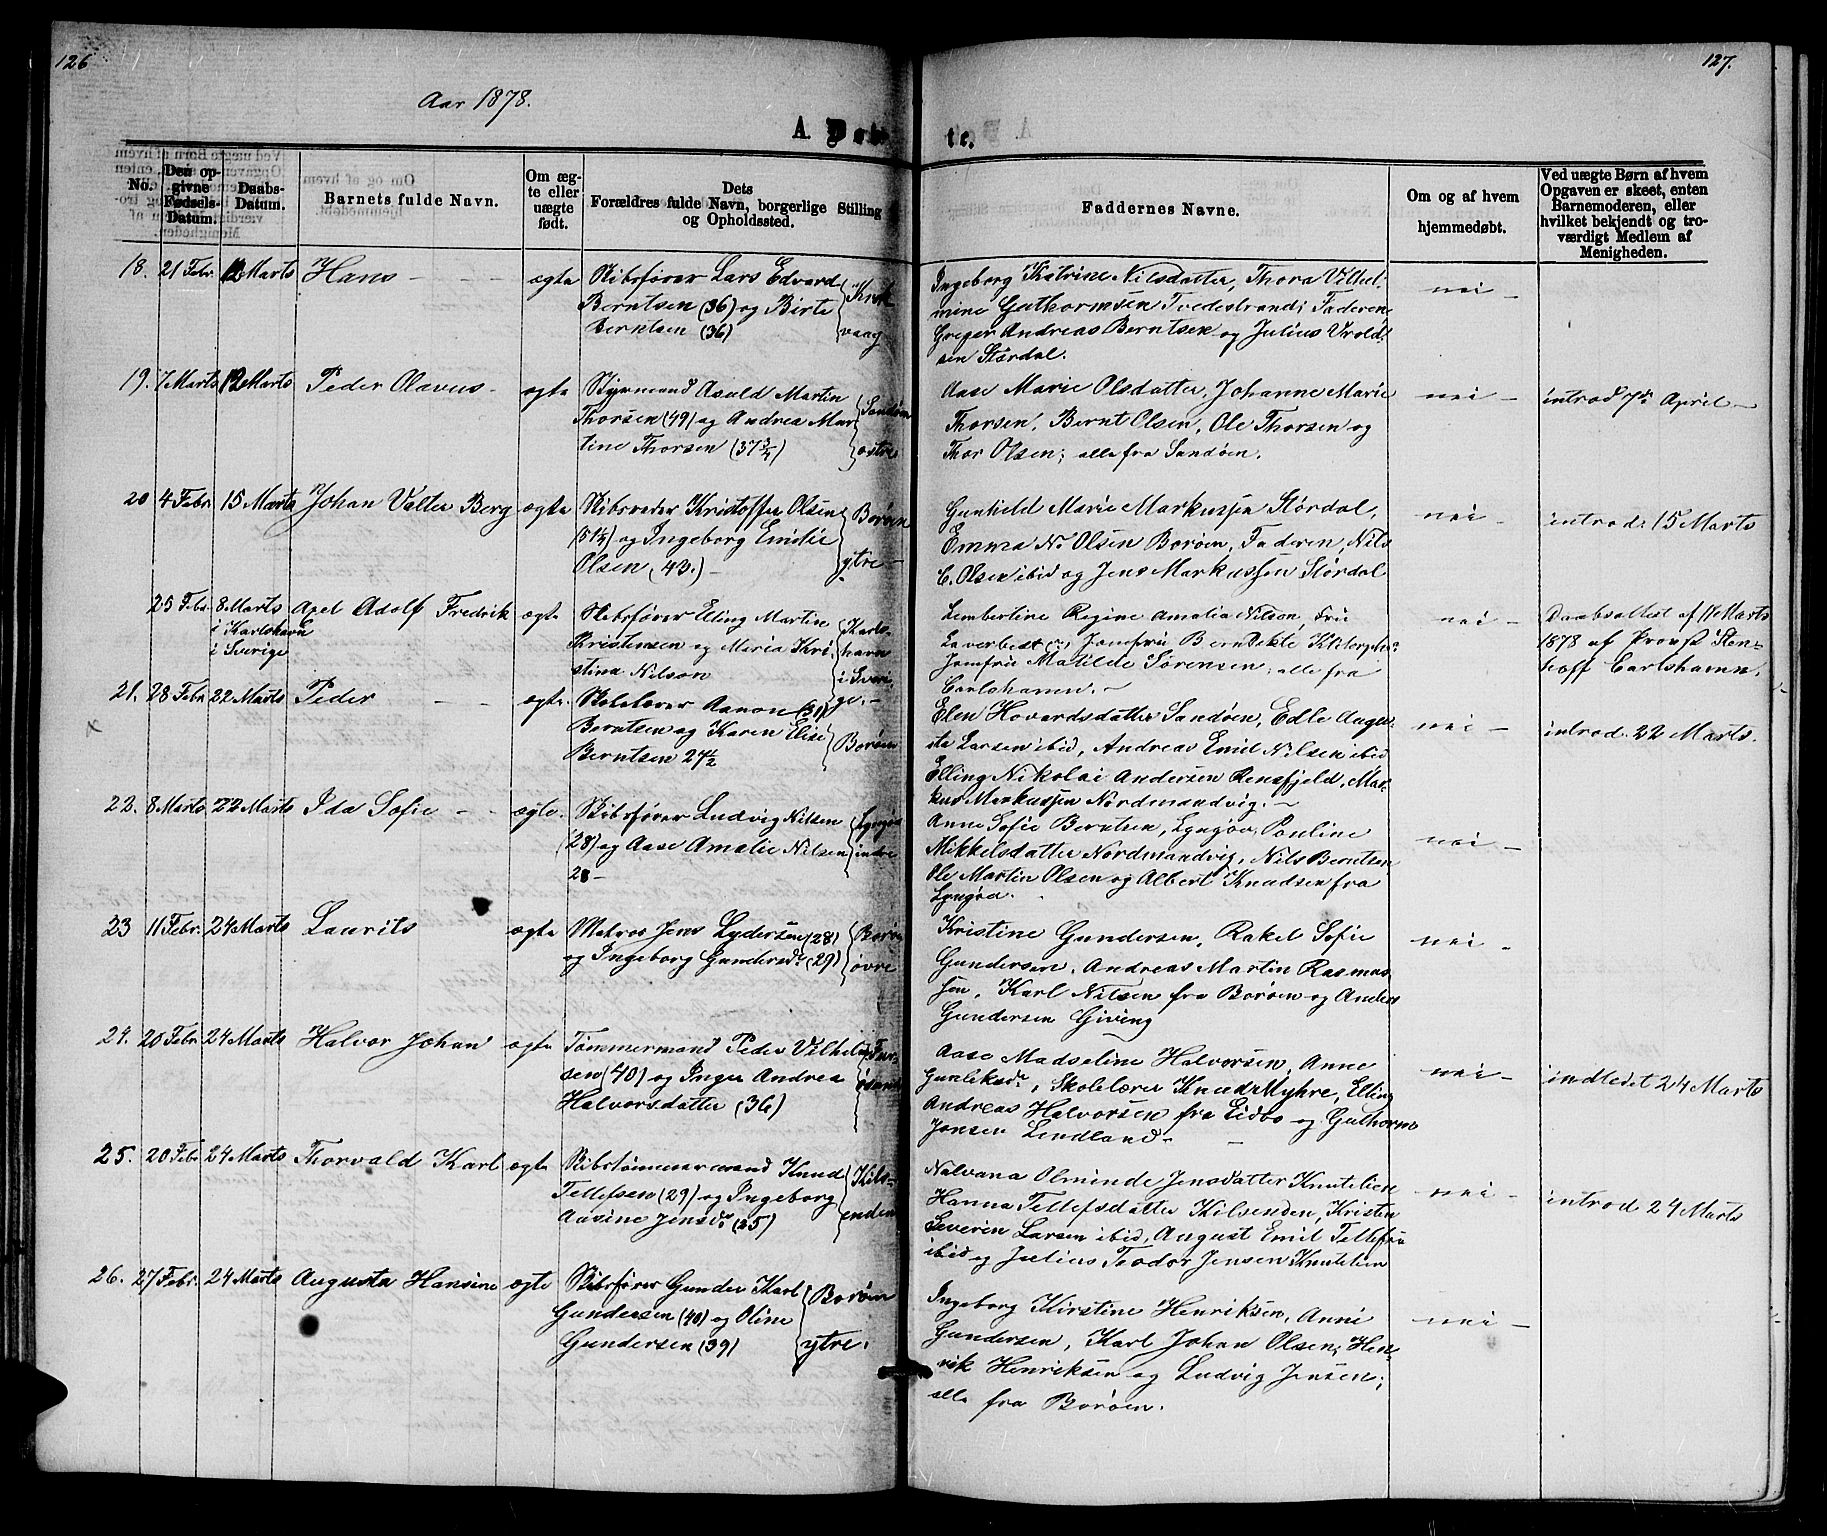 126
127.
Aar 1878.
A. Døbte.
No.
Den opgivne Fødsels-Datum.
Daabs-Datum.
Barnets fulde Navn.
Om ægte eller uægte født.
Dets Forældres fulde Navn, borgerlige Stilling og Opholdssted.
Faddernes Navne.
Om og af hvem hjemmedøbt.
Ved uægte Børn af hvem Opgaven er skeet, enten Barnemoderen, eller hvilket bekjendt og troværdigt Medlem af Menigheden.
18. 21 Febr. 12 Marts Hans ægte
Skibsfører Lars Edvard
Berntsen (36) og Birte
Berntsen (36)
vaag
Ingeborg Katrine Nilsdatter, Thora Vilhel-
mine Guthormsen Tvedestrand; Faderen
Greger Andreas Berntsen og Julius Vrold-
sen Stördal.
nei
19. 7 Marts 12 Marts Peder Olavus ægte
Styrmand Asuld Martin
Thorsen (49) og Andrea Mar
tine Thorsen (37 3/4)
Sandøen
østre
Aase Marie Olsdatter, Johanne Marie
Thorsen, Bernt Olsen, Ole Thorsen og
Thor Olsen; alle fra Sandøen.
nei
introd 7de April
20 4 Febr. 15 Marts Johan Valter Berg ægte
Skibsreder Kristoffer Olsen
(51 1/2) og Ingeborg Emilie
Olsen (43.)
Borøen
ytre
Gunhild Marie Markussen Stördal,
Emma N. Olsen Borøen, Faderen, Nils
C. Olsen ibid og Jens Markussen Stördal
nei
introd. 15 Marts
25 Febr. 8 Marts
i Karlshavn
i Sverige
Axel Adolf Fredrik ægte
Skibsfører Elling Martin
Kristensen og Maria Kri-
stina Nilson
Karls-
havn
i Sveri-
ge.
Lembertine Regine Amalia Nilson, Fru
Jomfru Matilde Sørensen, alle fra
Carlshamn.
nei
Daabsattest af 11 Marts
1878 af Provst Sten-
hoff Carlshamn.
21. 28 Febr 22 Marts Peder ægte.
Skolelærer Aanon (31)
Berntsen og Karen Elise
Berntsen 24 1/2
Borøen
Elen Hovardsdatter Sandøen, Edle Augu-
sta Larsen ibid, Andreas Emil Nilsen ibid
Elling Nikolai Andersen Rensfjeld, Mar-
kus Markussen Nordmandvig.
nei
introd. 22 Marts.
22. 8 Marts 22 Marts Ida Sofie ægte.
Skibsfører Ludvig Nilsen
(28) og Aase Amalie Nilsen
Lyngøa
indre
Anne Sofie Berntsen, Lyngøa, Pauline
Mikkelsdatter Nordmandvig, Nils Berntsen
Ole Martin Olsen og Albert Knudsen fra
Lyngøa.
nei
23 11 Febr. 24 Marts Laurits ægte
Matros Jens Lydersen (28)
og Ingeborg Gundersd. (29)
Borøen
øvre
Kristine Gundersen, Rakel Sofie
Gundersen, Andreas Martin Rasmus-
sen, Karl Nilsen fra Borøen og Anders
Gundersen Giving
nei
24. 20 Febr 24 Marts Halvor Johan ægte
Tømmermand Peder Vilhelm
sen (40) og Inger Andrea
Halvorsdatter (36)
Aase Madseline Halvorsen, Anne
Gunleksdr, Skolelærer Knud Myhre, Elling
Andreas Halvorsen fra Eidbo og Guthorm
Jensen Lindland
nei
indledet 24 Marts
25. 20 Febr 24 Marts Thorvald Karl ægte
Skibstømmermand Knud
Tellefsen (29) og Ingeborg
Aasine Jensdr (25)
Kils-
enden
Nalvana Olminde Jensdatter Knutelien
Hanna Tellefsdatter Kilsenden, Kristen
Severin Larsen ibid, August Emil Tellefsen
ibid og Julius Teodor Jensen Knutelien
nei
introd 24 Marts
26. 27 Febr. 24 Marts Augusta Hansine ægte
Skibsfører Gunder Karl
Gundersen (40) og Oline
Gundersen (39)
Borøen
ytre.
Ingeborg Kirstine Henriksen, Anni
Gundersen, Karl Johan Olsen, Hen-
rik Henriksen og Ludvig Jensen;
alle fra Borøen.
nei